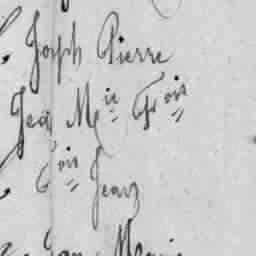 Joseph Pierre
Jean Mie Fois
Fois Jean
Jean Marie